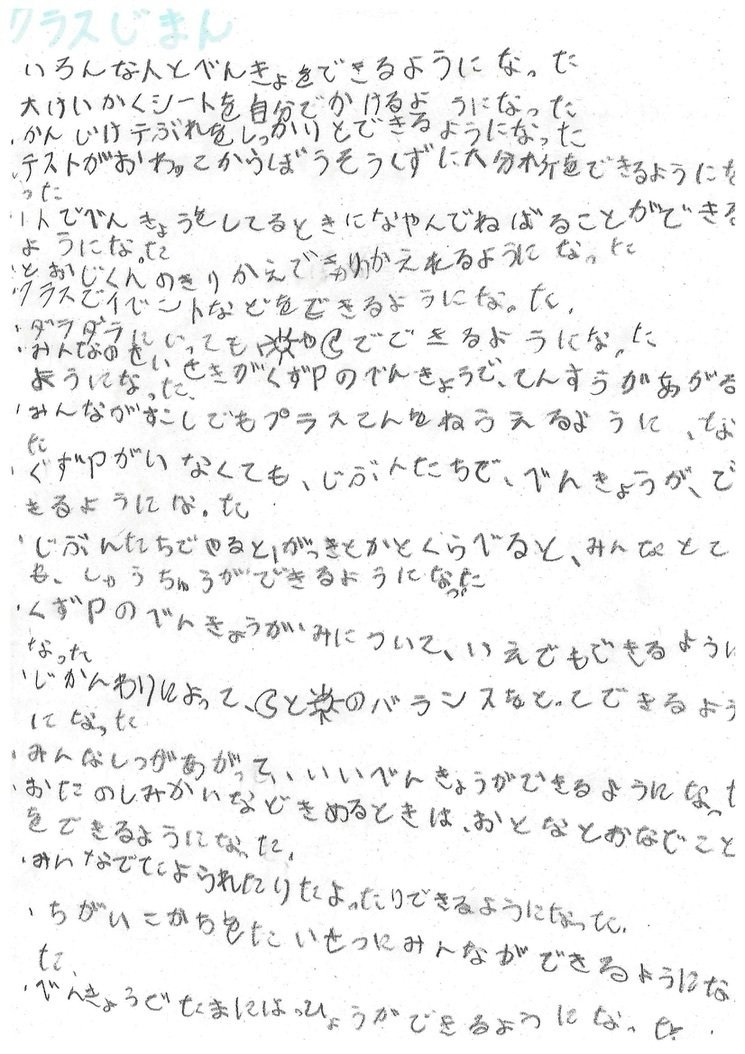 クラスじまん
いろんな人とべんきょをできるようになった
大けいかくシートを自分でかけるようになった
・かんじけテぶれをしっかりとできるようになった
・テストがおわってからぼうそうくずに大分析をできるようにな
った
・1人でべんきょうをしてるときになやんでねばることができる
ようになった
・とおじくんのきりかえできりかえれるようになった
クラスでイベントなどをできるようになった。
・ダラダラにいっても☀や☾でできるようになった
・みんなのせいせきがくずPのべんきょうで、てんすうがあがる
ようになった、
・みんながすこしでもプラスてんをねらうえるように、な
た
・くずPがいなくても、じぶんたちで、べんきょうが、で
きるようになった
・じぶんたちでやると1がっきとかとくらべると、みんなとて
も、しゅうちゅうができるようになった
・くずPのべんきょうがみについて、いえでもできるように
なった
・じかんわりによって、☾と☀のバランスをとってできるよう
になった
・みんなしつがあがって、いいべんきょうができるようになった
・おたのしみかいなどきめるときは、おとなとかなでこと
をできるようになった。
・みんなでたよられたりたよったりできるようになった。
・ちがいこかちをたいせつにみんながができるようにな
た、
・べんきょうでたまにはっぴょうができるようになった.